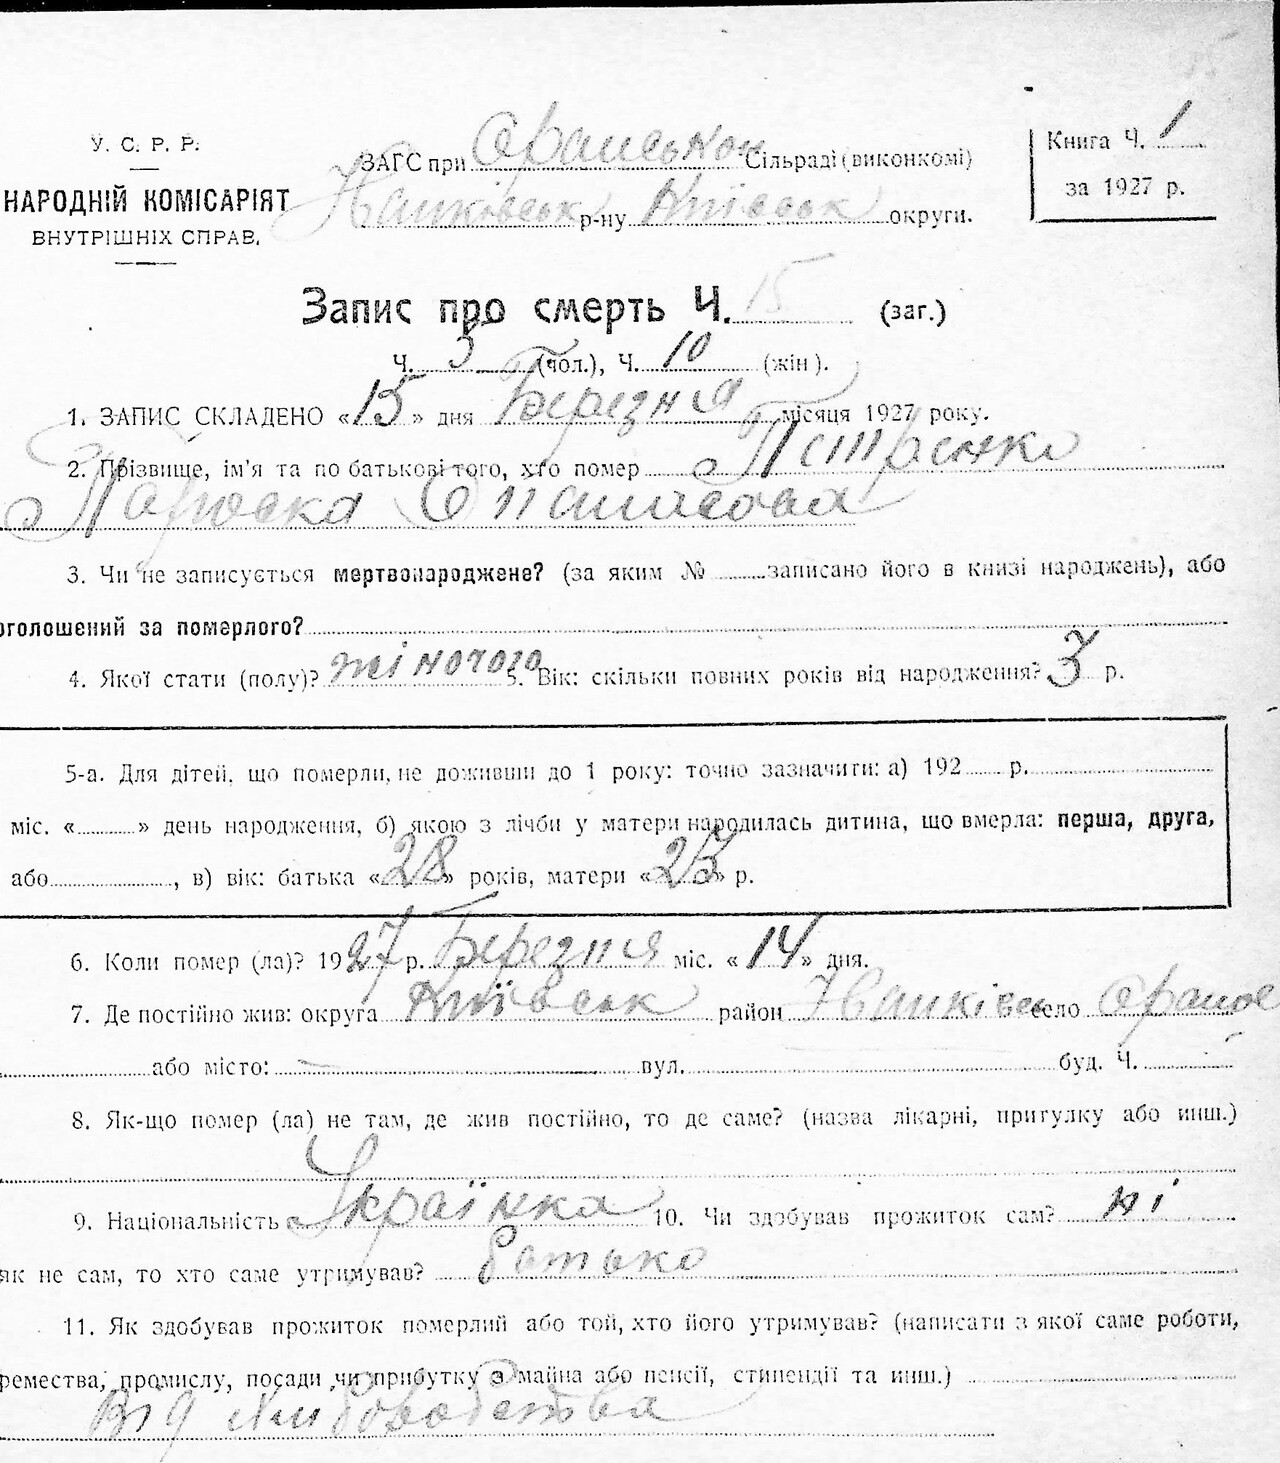 У. С. Р. Р.
НАРОДНІЙ КОМІСАРІЯТ
ВНУТРІШНІХ СПРАВ.
ЗАГС при Оранській Сільраді (виконкомі)
Іванківськ р-ну Київськ округи.
Книга Ч. 1
за 1927 р.
Запис про смерть Ч. 15 (заг.)
Ч. 5 (чол.), Ч. 10 (жін).
1. ЗАПИС СКЛАДЕНО «15» дня Березня місяця 1927 року.
2. Прізвище, ім'я та по батькові того, хто помер Петренко
Параска Опанасова
3. Чи не записується мертвонароджене? (за яким № записано його в книзі народжень), або
оголошений за померлого?
4. Якої стати (полу)? жіночого 5. Вік: скільки повних років від народження? 3 р.
5-а. Для дітей, що померли, не доживши до 1 року: точно зазначити: а) 192 р.
міс. « » день народження, б) якою з лічби у матери народилась дитина, що вмерла: перша, друга,
або , в) вік: батька «28» років, матери «25» р.
6. Коли помер (ла)? 1927 р. Березня міс. «14» дня.
7. Де постійно жив: округа Київськ район Іванківськ село Оране
або місто: — вул. буд. Ч.
8. Як-що помер (ла) не там, де жив постійно, то де саме? (назва лікарні, притулку або инш.)
9. Національність Українка 10. Чи здобував прожиток сам? ні
як не сам, то хто саме утримував? батько
11. Як здобував прожиток померлий або той, хто його утримував? (написати з якої саме роботи,
ремества, промислу, посади чи прибутку з майна або пенсії, стипендії та инш.)
Від хліборобства